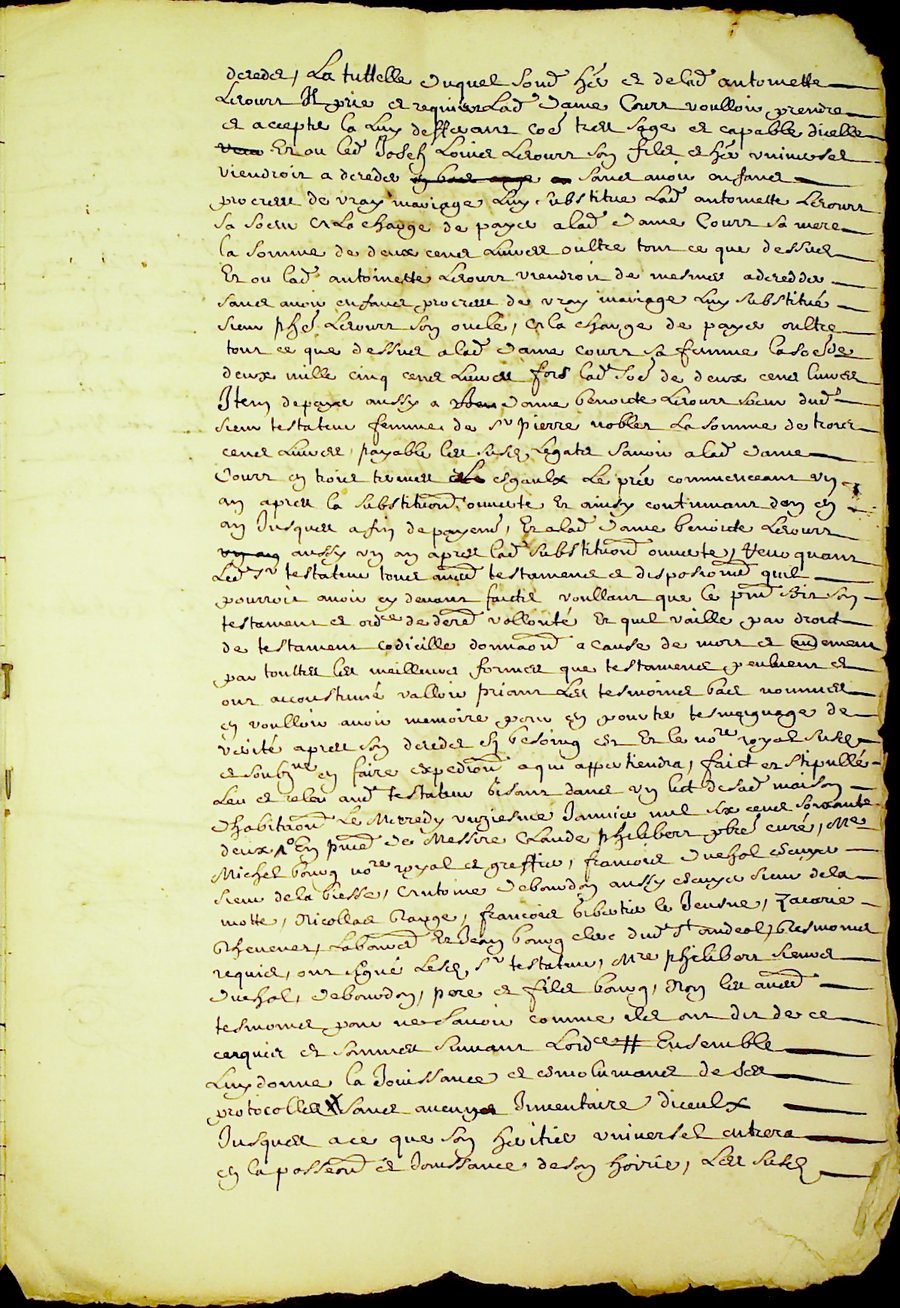 decedes, La tuttelle duquel sond her et de lad antoinette
Lerourt Il prie et requier Lad dame Court voulloir prendre
et accepte la Luy defferant coe tres sage et capable dicelle
Et ou led Joseph Lerourt son fils et her universel
viendroit a deceder sans avoir anfans
procrees de vray mariage Luy substitue Lad antoinette Lerourt
sa soeur et La charge de payer a lad dame Court sa mere
la somme de deux cens Livres oultre tout ce que dessus
Et ou lad antoinette Lerourt viendroit de mesmes a decedder
sans avoir enfans procrees de vray mariage Luy substitue
sieur phe Lerourt son oncle, et la charge de payer oultre
tout ce que dessus a lad dame court sa femme la soe de
deux mille cinq cens Livres fors lad soe de deux cens livres
Item de payer aussy a dame benoite Lerourt soeur dud
sieur testateur femme de sr pierre nobles La somme de trois
cens Livres, payable les susd Legats savoir a lad dame
Court en trois termes esgaulx Le pre commenceant un
an apres la substitution ouverte Et ainsy continuant dan en
an Jusques a fin de payemt, Et a lad dame benoite Lerourt
aussy un an apres lad substitution ouverte, Revoquant
Led sr testateur tous autres testamens et dispositions quil
pourroit avoir cy devant faicts voullant que le pnt soit son
testament et ordce de derre vollonte Et quil vaille par droit
de testament codicille donnaon a cause de mort et
par touttes les meilleures formes que testamens peuvent et
ont accoustumé valloir priant Les tesmoins bas nommes
en voulloir avoir memoire pour en porter tesmoignage de
verité apres son deceds sy besoing est Et le nore royal susd
et soubne en faire expedion a qui appartiendra, faict et stipullé
Leu et releu aud testateur gisant dans un lict de sad maison
dhabitaon Le Mercredy unziesme Janvier mil six cens soixante
deux En pnce de Messire Claude philibert pbre curé, Me
Michel bourg nore royal et greffier, francois duchol escuyer
sieur de la biesse, Antoine debourdon aussy escuyer sieur dela
motte, Nicollas Range, francois bibertie le Jeusne, Zacarie
Chevenet, Laboureur Et Jean bourg clerc dud st andeol, tesmoins
requis, ont signé Lesd sr testateur, Mre philibert sieurs
duchol, debourdon, pere et fils bourg, Non les autres
tesmoins pour ne savoir comme ils ont dit de ce
enquis et sommes suivant Lordce # Ensemble
Luy donne la Jouissance et esmolumens de ses
protocolles X sans aucung Inventaire diceulx
Jusques a ce que son heritier universel entrera
en la possession et Jouissance de son hoirie, Les susd